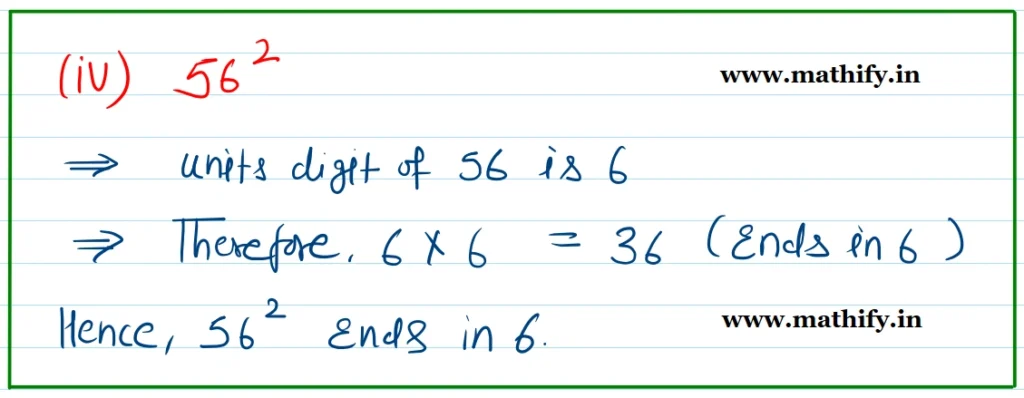 (iv) 56²
www.mathify.in
⇒ units digit of 56 is 6
⇒ Therefore, 6 × 6 = 36 (Ends in 6)
Hence, 56² Ends in 6.
www.mathify.in